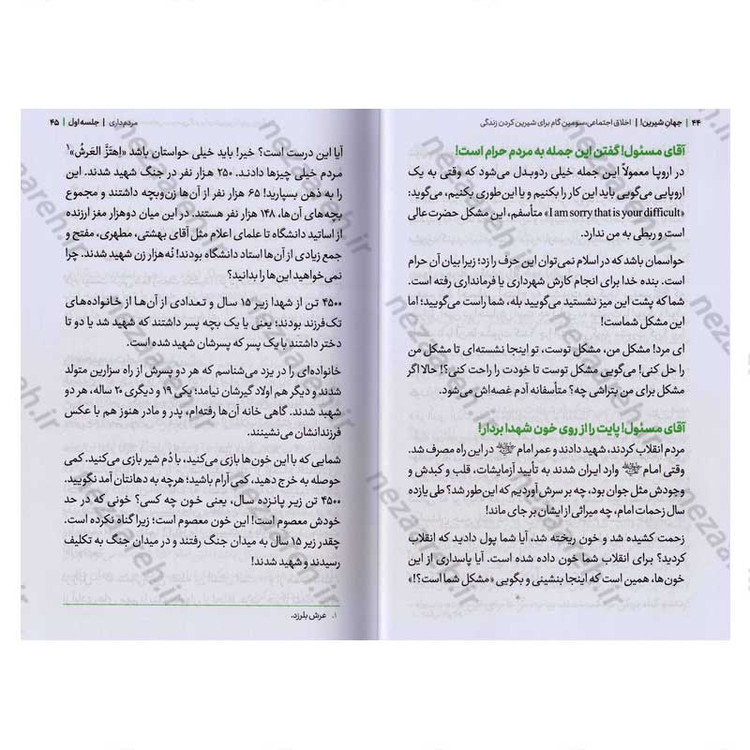 ۴۴ | جهان شیرین! | اخلاق اجتماعی، سومین گام برای شیرین کردن زندگی
آقای مسئول! گفتن این جمله به مردم حرام است!
در اروپا معمولاً این جمله خیلی ردوبدل می‌شود که وقتی به یک
اروپایی می‌گویی باید این کار را بکنیم و یا این‌طوری بکنیم، می‌گوید:
«I am sorry that is your difficult» متأسفم، این مشکل حضرت عالی
است و ربطی به من ندارد.
حواسمان باشد که در اسلام نمی‌توان این حرف را زد؛ زیرا بیان آن حرام
است. بنده خدا برای انجام کارش شهرداری یا فرمانداری رفته است.
شما که پشت این میز نشستید می‌گویید بله، شما راست می‌گویید؛ اما
این مشکل شماست!
ای مرد! مشکل من، مشکل توست، تو اینجا نشسته‌ای تا مشکل من
را حل کنی! می‌گویی مشکل توست تا خودت را راحت کنی؟! حالا اگر
مشکل برای من پتراشی چه؟ متأسفانه آدم غصه‌اش می‌شود.
آقای مسئول! پایت را از روی خون شهدا بردار!
مردم انقلاب کردند، شهید دادند و عمر امام در این راه مصرف شد.
وقتی امام وارد ایران شدند به تأیید آزمایشات، قلب و کبدش و
وجودش مثل جوان بود، چه بر سرش آوردیم که این‌طور شد؟ طی یازده
سال زحمات امام، چه میراثی از ایشان بر جای ماند!
زحمت کشیده شد و خون ریخته شد، آیا شما پول دادید که انقلاب
کردید؟ برای انقلاب شما خون داده شده است. آیا پاسداری از این
خون‌ها، همین است که اینجا بنشینی و بگویی «مشکل شما است؟!»
مردم‌داری | جلسه اول | ۴۵
آیا این درست است؟ خیر! باید خیلی حواستان باشد «اِهتَزَّ العَرشُ»۱
مردم خیلی چیزها دادند. ۲۵۰ هزار نفر در جنگ شهید شدند. این
را به ذهن بسپارید! ۶۵ هزار نفر از آن‌ها زن‌وبچه داشتند و مجموع
بچه‌های آن‌ها، ۱۴۸ هزار نفر هستند. در این میان دوهزار مغز ارزنده
از اساتید دانشگاه تا علمای اعلام مثل آقای بهشتی، مطهری، مفتح و
جمع زیادی از آن‌ها استاد دانشگاه بودند! نُه‌هزار زن شهید شدند. چرا
نمی‌خواهید این‌ها را بدانید؟
۴۵۰۰ تن از شهدا زیر ۱۵ سال و تعدادی از آن‌ها از خانواده‌های
تک‌فرزند بودند؛ یعنی یا یک بچه پسر داشتند که شهید شد یا دو تا
دختر داشتند با یک پسر که پسرشان شهید شده است.
خانواده‌ای را در یزد می‌شناسم که هر دو پسرش از راه سزارین متولد
شدند و دیگر هم اولاد گیرشان نیامد؛ یکی ۱۹ و دیگری ۲۰ ساله، هر دو
شهید شدند. گاهی خانه آن‌ها رفته‌ام، پدر و مادر هنوز هم با عکس
فرزندانشان می‌نشینند.
شمایی که با این خون‌ها بازی می‌کنید، با دُم شیر بازی می‌کنید. کمی
حوصله به خرج دهید، کمی آرام باشید؛ هرچه به دهانتان آمد نگویید.
۴۵۰۰ تن زیر پانزده سال، یعنی خون چه کسی؟ خونی که در حد
خودش معصوم است! این خون معصوم است؛ زیرا گناه نکرده است.
چقدر زیر ۱۵ سال به میدان جنگ رفتند و در میدان جنگ به تکلیف
رسیدند و شهید شدند!
۱. عرش بلرزد.
nezaareh.ir